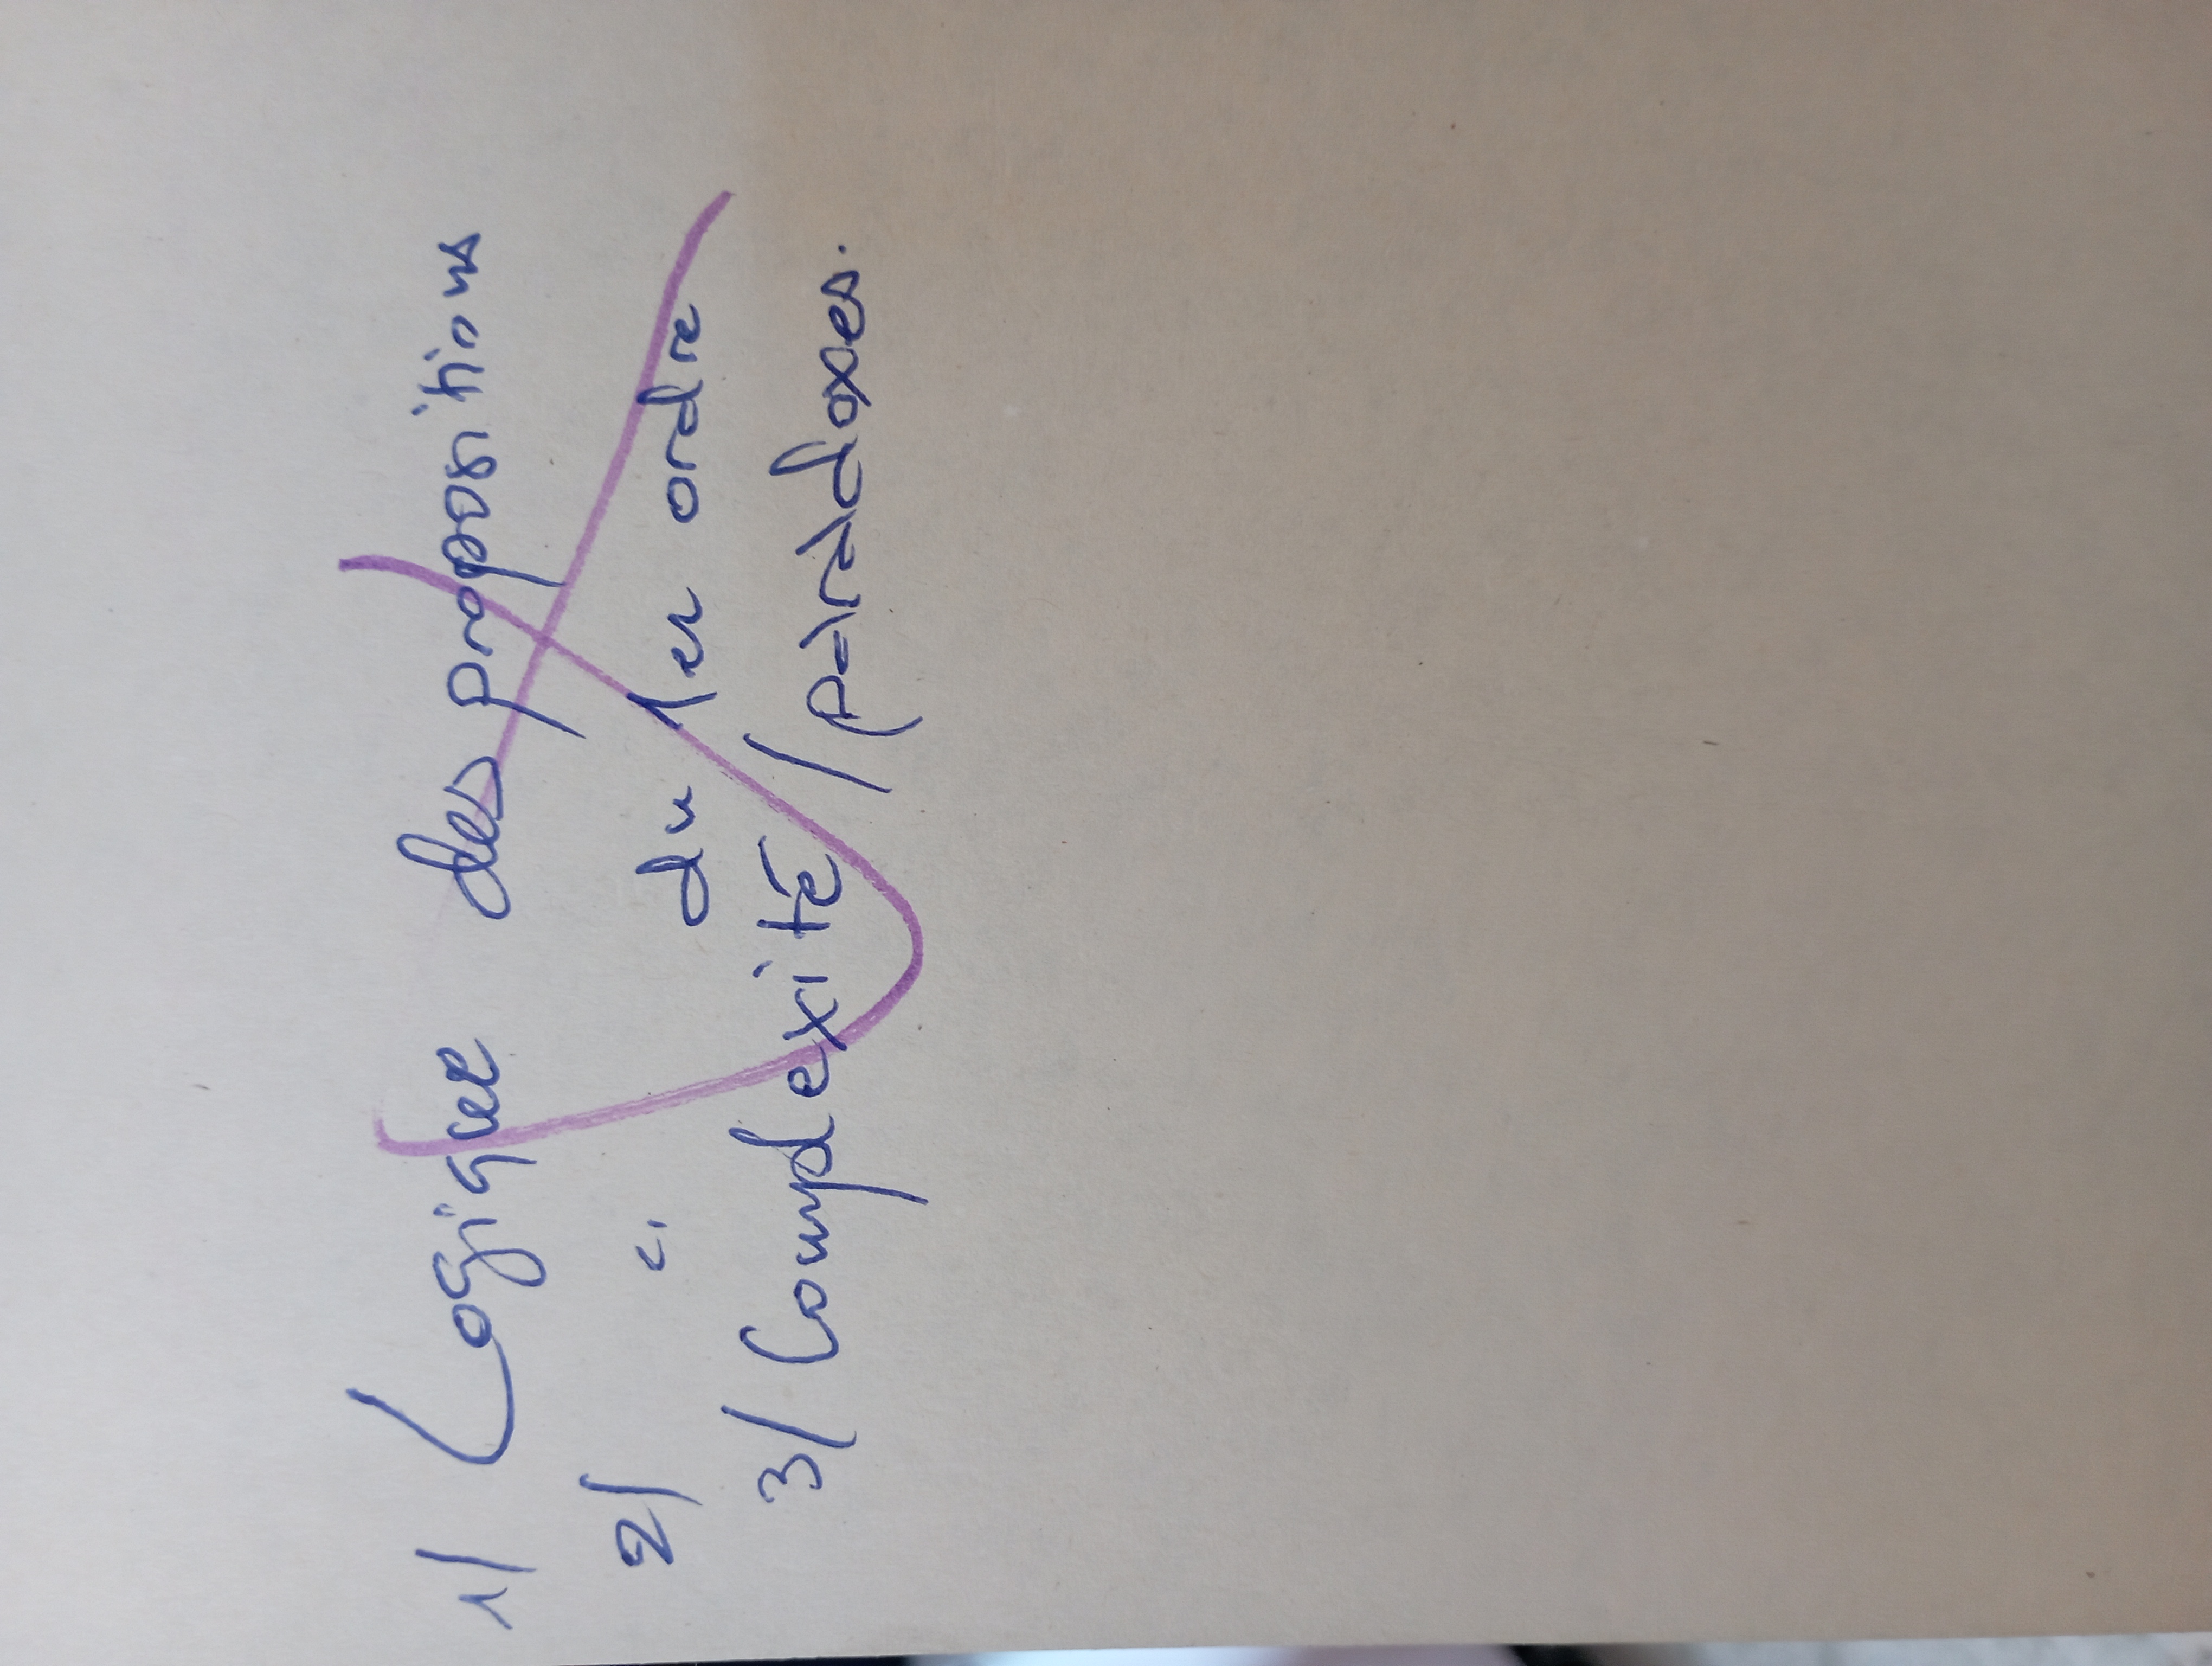 1/ Logique des propositions
2/ " du 1er ordre
3/ Complexité / paradoxes.